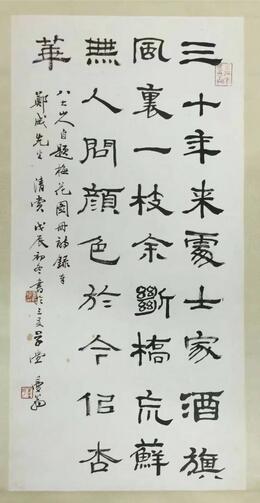 三十年来處士家酒旗
風裏一枝余斷橋巟蘚
無人問顏色於今佀杏
華
八大山人自題梅花圖冊詩錄奉
鄭威先生清賞戊辰初冬書於